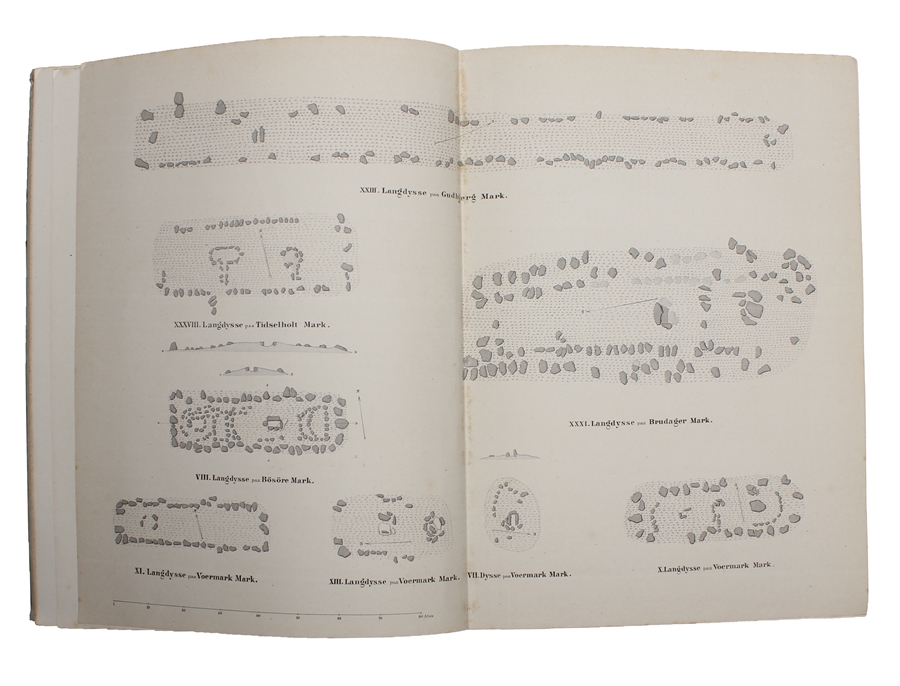 XXIII. Langdysse paa Gudbjerg Mark.
XXXVIII. Langdysse paa Tidselholt Mark.
VIII. Langdysse paa Bösöre Mark.
XXXI. Langdysse paa Brudager Mark.
XI. Langdysse paa Voermark Mark.
XIII. Langdysse paa Voermark Mark.
VII. Dysse paa Voermark Mark.
X. Langdysse paa Voermark Mark.